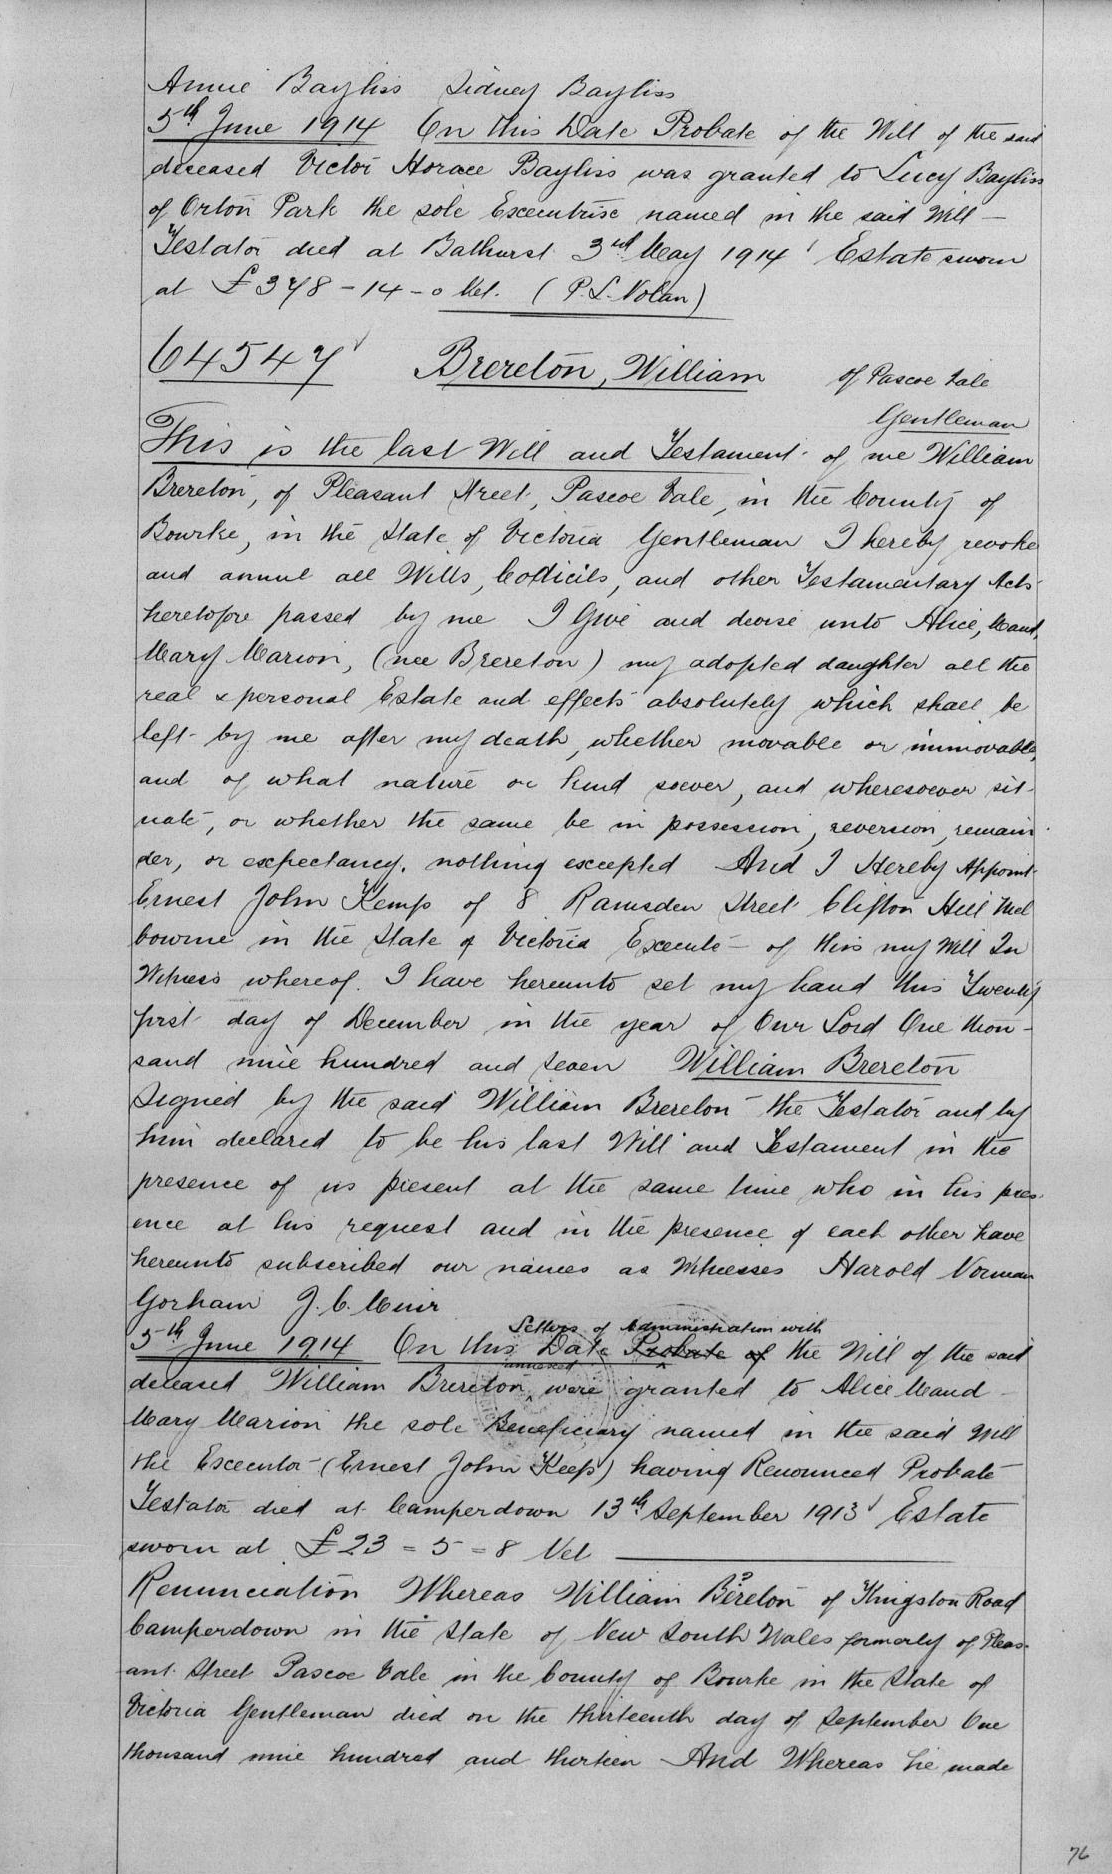 Annie Bayliss Sidney Bayliss
5th June 1914 On this Date Probate of the Will of the said
deceased Victor Horace Bayliss was granted to Lucy Bayliss
of Orton Park the sole Executrix named in the said Will —
Testator died at Bathurst 3rd May 1914 Estate sworn
at £378-14-0 Net. (P.L. Nolan)
64547 Brereton, William of Pascoe Vale
Gentleman
This is the last Will and Testament of me William
Brereton, of Pleasant Street, Pascoe Vale, in the County of
Bourke, in the State of Victoria Gentleman I hereby revoke
and annul all Wills, Codicils, and other Testamentary Acts
heretofore passed by me I Give and devise unto Alice, Maud,
Mary Marion, (nee Brereton) my adopted daughter all the
real & personal Estate and effects absolutely which shall be
left by me after my death, whether movable or immovable,
and of what nature or kind soever, and wheresoever sit-
uate, or whether the same be in possession, reversion, remain-
der, or expectancy. nothing excepted And I Hereby Appoint
Ernest John Kemp of 8 Ramsden Street Clifton Hill Mel
bourne in the State of Victoria Execute — of this my Will In
Witness whereof. I have hereunto set my hand this Twenty
first day of December in the year of Our Lord One thou-
sand nine hundred and seven William Brereton
Signed by the said William Brereton the Testator and by
him declared to be his last Will and Testament in the
presence of us present at the same time who in his pres-
ence at his request and in the presence of each other have
hereunto subscribed our names as Witnesses Harold Norman
Gorham J. C. Muir
Letters of Administration with
5th June 1914 On this Date Probate of the Will of the said
annexed
deceased William Brereton were granted to Alice Maud —
Mary Marion the sole Beneficiary named in the said Will
the Executor (Ernest John Keep) having Renounced Probate
Testator died at Camperdown 13th September 1913 Estate
sworn at £23=5=8 Net
Renunciation Whereas William Bereton of Kingston Road
Camperdown in the State of New South Wales formerly of Pleas-
ant Street Pascoe Vale in the County of Bourke in the State of
Victoria Gentleman died on the thirteenth day of September One
thousand nine hundred and thirteen And Whereas he made
76